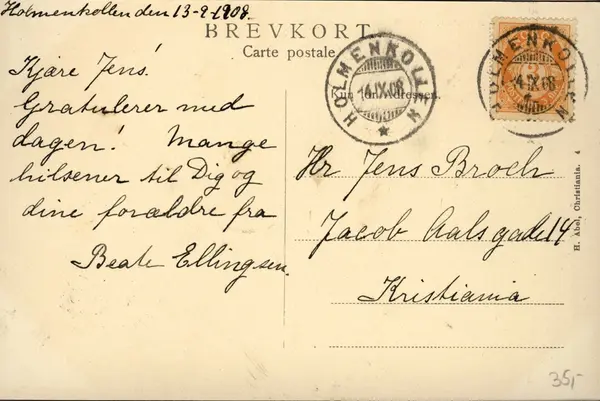 Holmenkollen den 13-9-1908.
BREVKORT
Carte postale
Kjære Jens!
Gratulerer med
dagen! Mange
hilsener til Dig og
dine forældre fra
Beate Ellingsen.
HOLMENKOLLEN
14 IX 08
Kun
adressen.
HOLMENKOLLEN
14 IX 08
Hr Jens Broch
Jacob Aalsgade 14
Kristiania
H. Abel, Christiania. 4
35,-